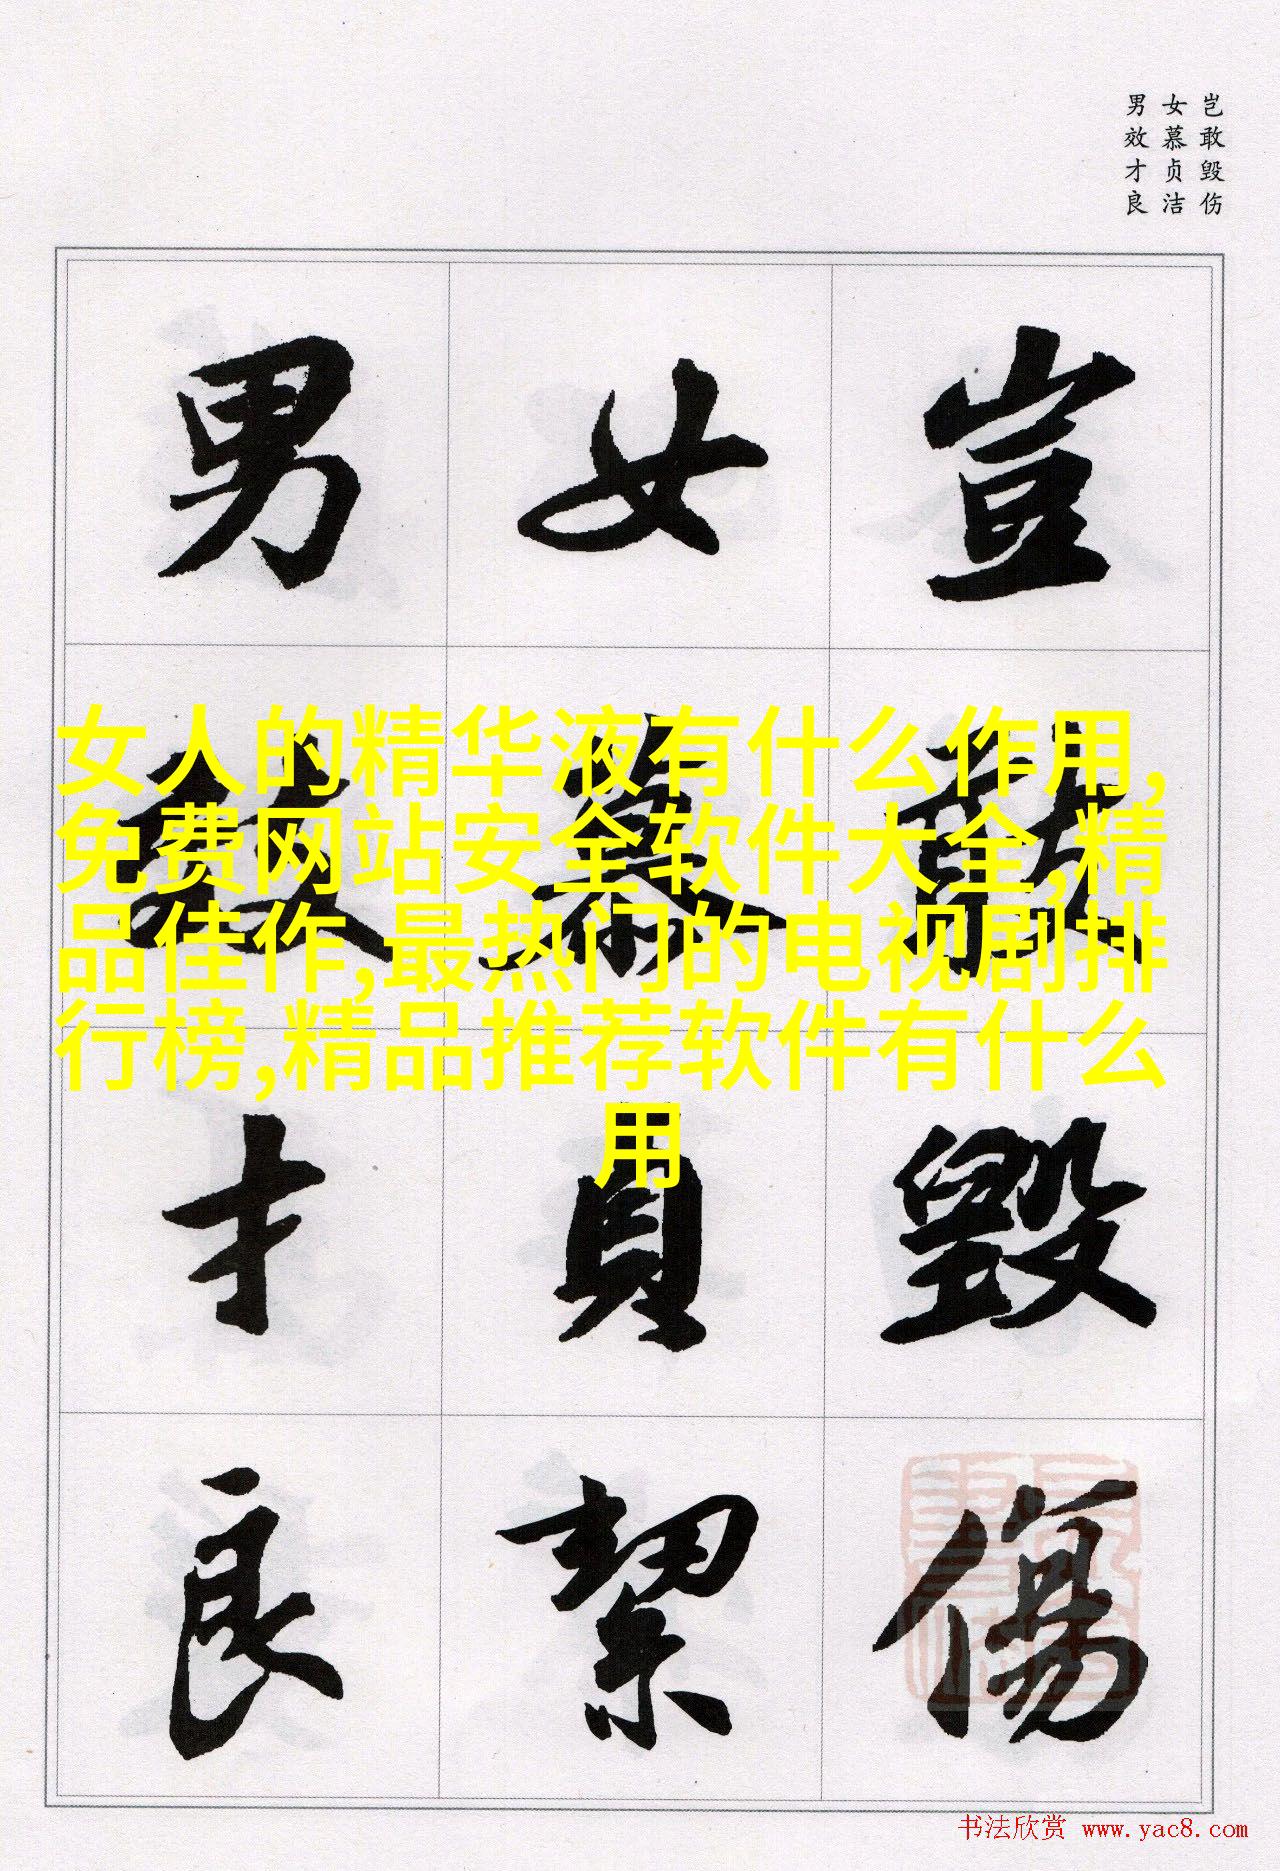 岂敢毁伤
女慕贞洁
男效才良
豈敢毀傷
女慕貞絜
男效才良
女人的精华液有什么作用,
免费网站安全软件大全,精
品佳作,最热门的电视剧排
行榜,精品推荐软件有什么
用
书法欣赏 www.yac8.com